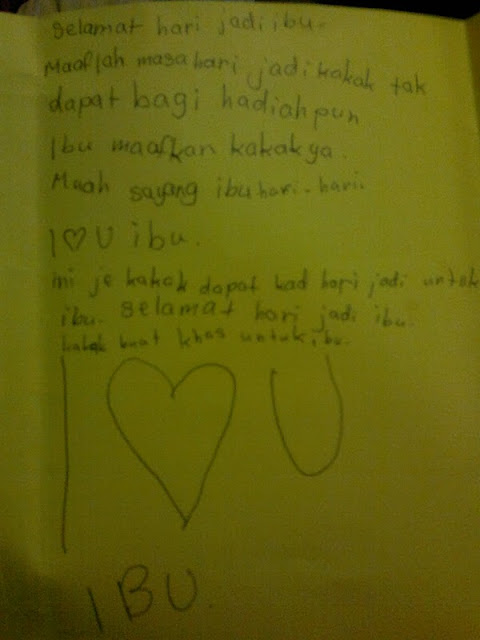 selamat hari jadi ibu.
Maaflah masa hari jadi kakak tak
dapat bagi hadiah pun
Ibu maafkan kakak ya.
Maah sayang ibu hari-hari.
I ♡ U ibu.
ini je kakak dapat kad hari jadi untuk
ibu. selamat hari jadi ibu.
kakak buat khas untuk ibu.
I ♡ U
IBU.